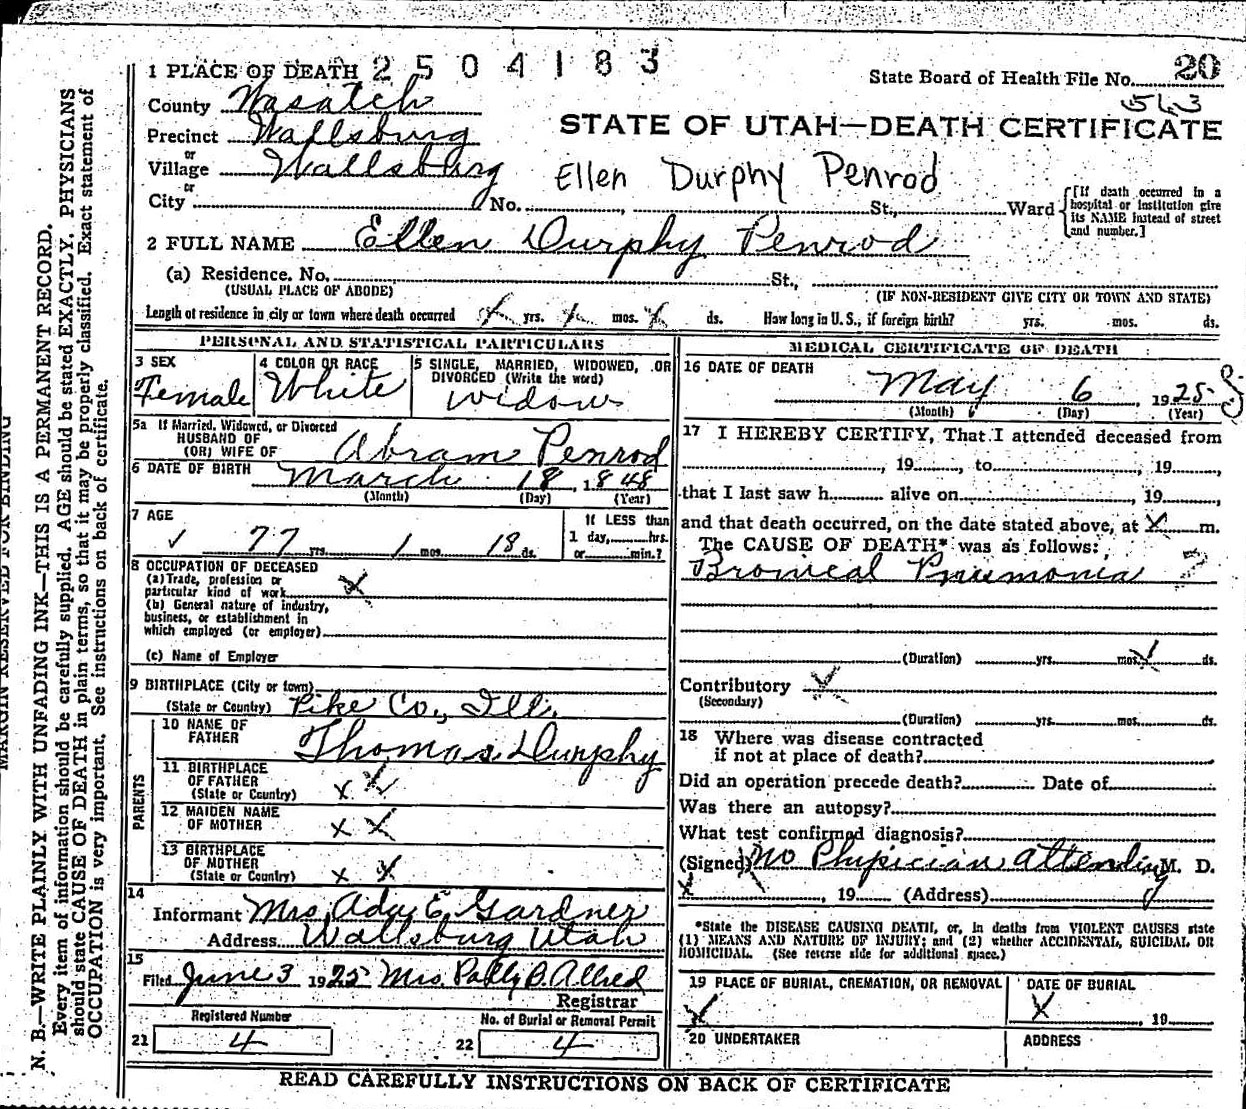 2504183
1 PLACE OF DEATH
State Board of Health File No. 20
563
County Wasatch
STATE OF UTAH—DEATH CERTIFICATE
Precinct Wallsburg
or
Village Wallsburg
Ellen Durphy Penrod
or
City No. , St., Ward
[If death occurred in a hospital or institution give its NAME instead of street and number.]
2 FULL NAME Ellen Durphy Penrod
(a) Residence. No. St.,
(USUAL PLACE OF ABODE) (IF NON-RESIDENT GIVE CITY OR TOWN AND STATE)
Length of residence in city or town where death occurred x yrs. x mos. x ds. How long in U. S., if foreign birth? yrs. mos. ds.
PERSONAL AND STATISTICAL PARTICULARS
3 SEX
Female
4 COLOR OR RACE
White
5 SINGLE, MARRIED, WIDOWED, OR
DIVORCED (Write the word)
widow
5a If Married, Widowed, or Divorced
HUSBAND OF
(OR) WIFE OF Abram Penrod
6 DATE OF BIRTH March 18, 1848
(Month) (Day) (Year)
7 AGE
77 yrs. 1 mos. 18 ds.
If LESS than
1 day, hrs.
or min.?
8 OCCUPATION OF DECEASED
(a) Trade, profession or
particular kind of work x
(b) General nature of industry,
business, or establishment in
which employed (or employer)
(c) Name of Employer
9 BIRTHPLACE (City or town)
(State or Country) Pike Co., Ill.
PARENTS
10 NAME OF
FATHER Thomas Durphy
11 BIRTHPLACE
OF FATHER
(State or Country) x x
12 MAIDEN NAME
OF MOTHER x x
13 BIRTHPLACE
OF MOTHER
(State or Country) x x
14
Informant Mrs. Ada E. Gardner
Address Wallsburg Utah
15
Filed June 3 1925 Mrs. Polly B. Allred
Registrar
Registered Number No. of Burial or Removal Permit
21 4 22 4
MEDICAL CERTIFICATE OF DEATH
16 DATE OF DEATH
May 6, 1925
(Month) (Day) (Year)
17 I HEREBY CERTIFY, That I attended deceased from
, 19 , to , 19 ,
that I last saw h alive on , 19 ,
and that death occurred, on the date stated above, at x m.
The CAUSE OF DEATH* was as follows:
Pnumonia
(Duration) yrs. mos. ds.
Contributory x
(Secondary)
(Duration) yrs. mos. ds.
18 Where was disease contracted
if not at place of death?
Did an operation precede death? Date of
Was there an autopsy?
What test confirmed diagnosis?
(Signed) No Physician attending M. D.
x , 19 (Address)
*State the DISEASE CAUSING DEATH, or, in deaths from VIOLENT CAUSES state
(1) MEANS AND NATURE OF INJURY; and (2) whether ACCIDENTAL, SUICIDAL OR
HOMICIDAL. (See reverse side for additional space.)
19 PLACE OF BURIAL, CREMATION, OR REMOVAL
x
DATE OF BURIAL
x , 19
20 UNDERTAKER ADDRESS
READ CAREFULLY INSTRUCTIONS ON BACK OF CERTIFICATE
MARGIN RESERVED FOR BINDING
N. B.—WRITE PLAINLY WITH UNFADING INK—THIS IS A PERMANENT RECORD.
Every item of information should be carefully supplied. AGE should be stated EXACTLY. PHYSICIANS
should state CAUSE OF DEATH in plain terms, so that it may be properly classified. Exact statement of
OCCUPATION is very important. See instructions on back of certificate.